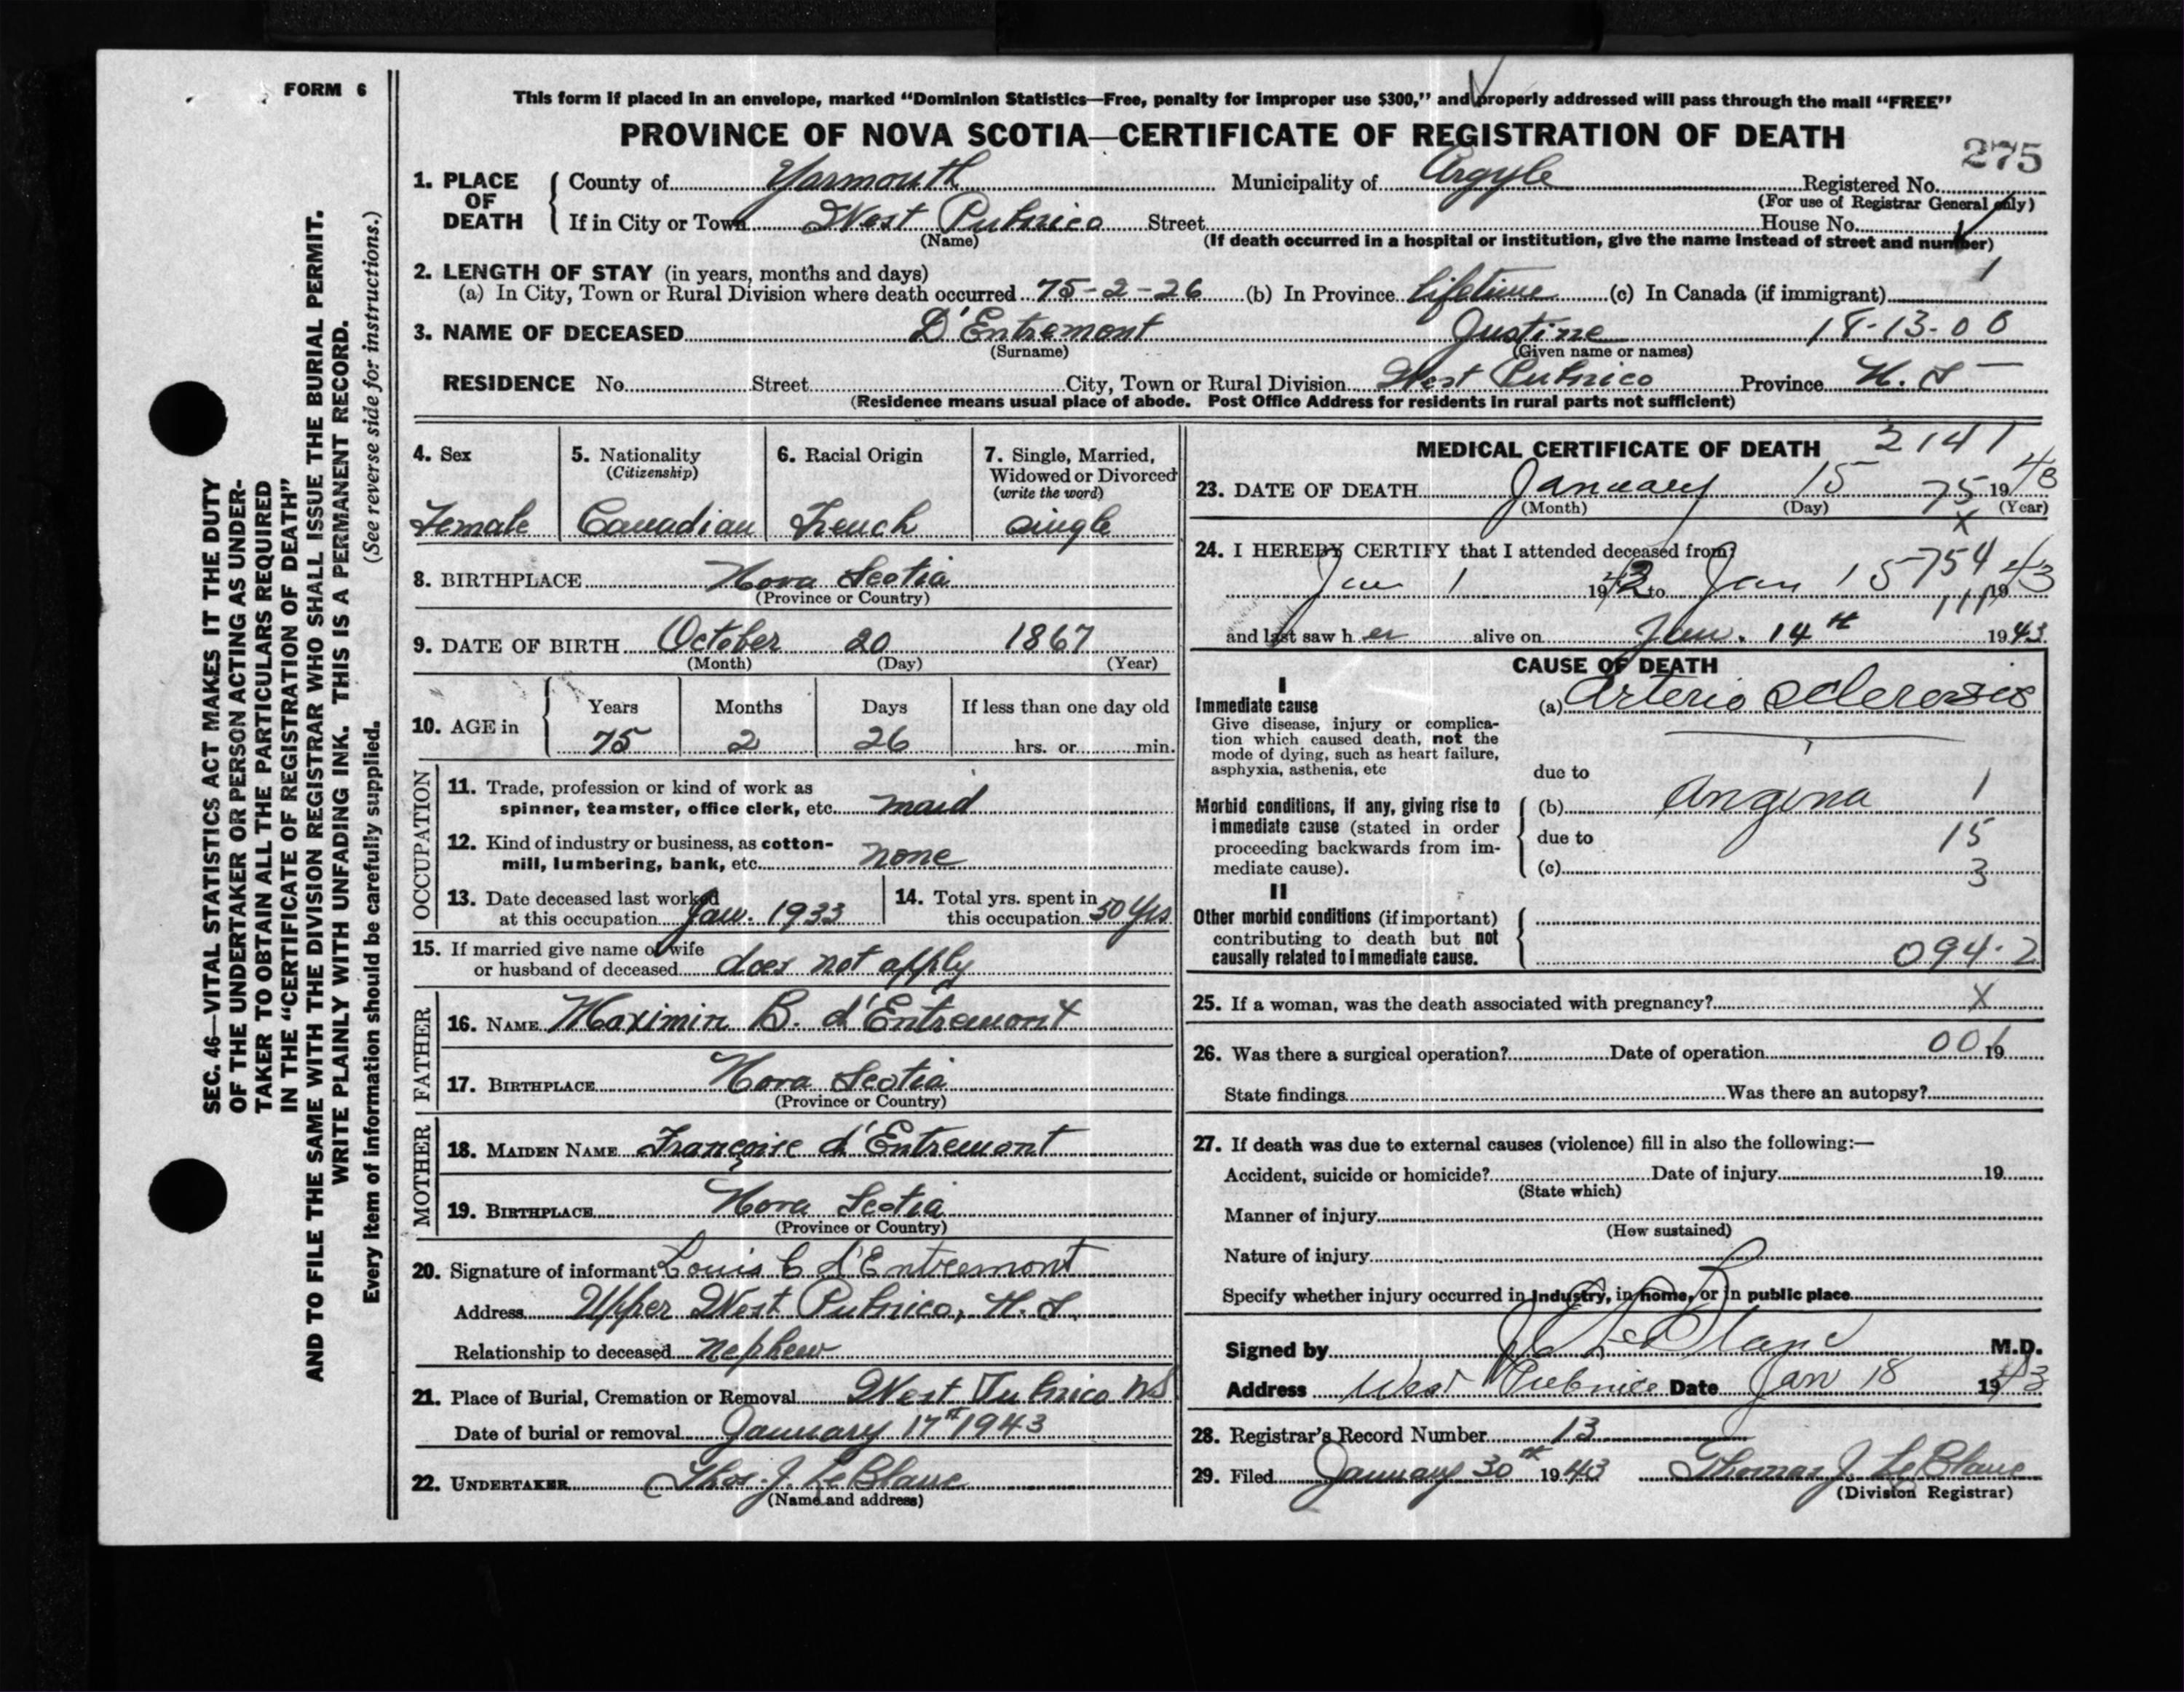 FORM 6
This form if placed in an envelope, marked "Dominion Statistics—Free, penalty for improper use $300," and properly addressed will pass through the mail "FREE"
PROVINCE OF NOVA SCOTIA—CERTIFICATE OF REGISTRATION OF DEATH
275
1. PLACE OF DEATH { County of Yarmouth Municipality of Argyle Registered No.
(For use of Registrar General only)
If in City or Town West Pubnico Street House No.
(Name) (If death occurred in a hospital or institution, give the name instead of street and number)
2. LENGTH OF STAY (in years, months and days) 1
(a) In City, Town or Rural Division where death occurred 75-2-26 (b) In Province lifetime (c) In Canada (if immigrant)
3. NAME OF DECEASED D'Entremont Justine 18-13-00
(Surname) (Given name or names)
RESIDENCE No. Street City, Town or Rural Division West Pubnico Province N. S
(Residence means usual place of abode. Post Office Address for residents in rural parts not sufficient)
4. Sex 5. Nationality 6. Racial Origin 7. Single, Married,
(Citizenship) Widowed or Divorced
(write the word)
Female Canadian French single
8. BIRTHPLACE Nova Scotia
(Province or Country)
9. DATE OF BIRTH October 20 1867
(Month) (Day) (Year)
10. AGE in { Years Months Days If less than one day old
75 2 26 hrs. or min.
OCCUPATION
11. Trade, profession or kind of work as
spinner, teamster, office clerk, etc. maid
12. Kind of industry or business, as cotton-
mill, lumbering, bank, etc. none
13. Date deceased last worked 14. Total yrs. spent in
at this occupation Jan. 1933 this occupation 50 yrs
15. If married give name of wife
or husband of deceased does not apply
FATHER
16. NAME Maximin B. d'Entremont
17. BIRTHPLACE Nova Scotia
(Province or Country)
MOTHER
18. MAIDEN NAME Françoise d'Entremont
19. BIRTHPLACE Nova Scotia
(Province or Country)
20. Signature of informant Louis C d'Entremont
Address Upper West Pubnico, N. S.
Relationship to deceased nephew
21. Place of Burial, Cremation or Removal West Pubnico NS
Date of burial or removal January 17th 1943
22. UNDERTAKER Thos. J. LeBlanc
(Name and address)
MEDICAL CERTIFICATE OF DEATH 2141
23. DATE OF DEATH January 15 75 1943
(Month) (Day) (Year)
x
24. I HEREBY CERTIFY that I attended deceased from:
Jan 1 1943 to Jan 15 754 1943
111
and last saw her alive on Jan. 14th 1943
CAUSE OF DEATH
I
Immediate cause (a) Arterio Sclerosis
Give disease, injury or complica-
tion which caused death, not the
mode of dying, such as heart failure,
asphyxia, asthenia, etc
due to
Morbid conditions, if any, giving rise to { (b) Angina 1
immediate cause (stated in order due to 15
proceeding backwards from im-
mediate cause). (c) 3
II
Other morbid conditions (if important) {
contributing to death but not
causally related to immediate cause. 094-2
25. If a woman, was the death associated with pregnancy? X
26. Was there a surgical operation? Date of operation 001 19
State findings Was there an autopsy?
27. If death was due to external causes (violence) fill in also the following:—
Accident, suicide or homicide? Date of injury 19
(State which)
Manner of injury
(How sustained)
Nature of injury
Specify whether injury occurred in Industry, in home, or in public place
Signed by LeBlanc M.D.
Address West Pubnico Date Jan 18 1943
28. Registrar's Record Number 13
29. Filed January 30th 1943 Thomas J. LeBlanc
(Division Registrar)
SEC. 46—VITAL STATISTICS ACT MAKES IT THE DUTY
OF THE UNDERTAKER OR PERSON ACTING AS UNDER-
TAKER TO OBTAIN ALL THE PARTICULARS REQUIRED
IN THE "CERTIFICATE OF REGISTRATION OF DEATH"
AND TO FILE THE SAME WITH THE DIVISION REGISTRAR WHO SHALL ISSUE THE BURIAL PERMIT.
WRITE PLAINLY WITH UNFADING INK. THIS IS A PERMANENT RECORD.
Every item of information should be carefully supplied. (See reverse side for instructions.)